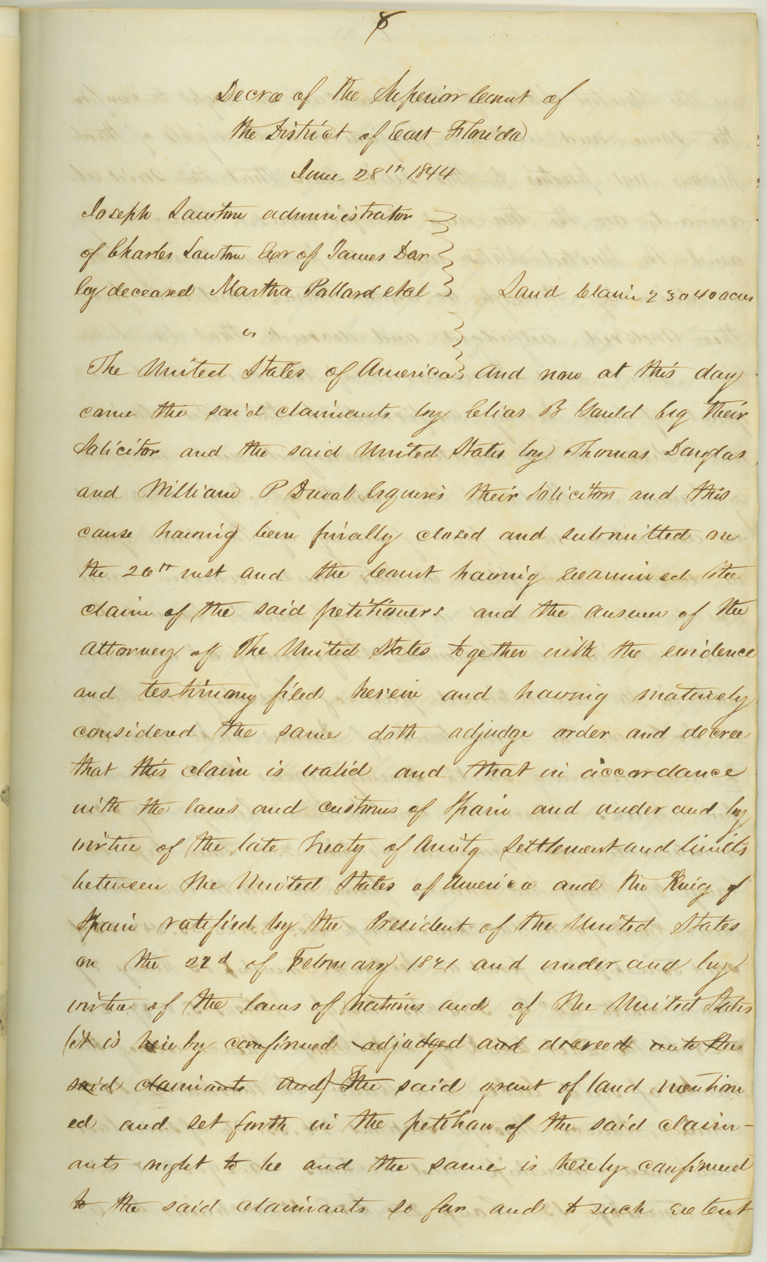 8
Decree of the Superior Court of
the District of East Florida
June 28th 1844
Joseph Lawton administrator
of Charles Lawton Exor of James Dar
by deceased Martha Pollard etal Land Claim 23040 acres
vs
The United States of America And now at this day
came the said claimants by Elias B Gould Esq their
Solicitor and the said United States by Thomas Douglas
and William P Duval Esquires their Solicitors and this
cause having been finally closed and submitted on
the 26th inst and the Court having examined the
claim of the said petitioners and the answer of the
attorney of The United States together with the evidence
and testimony filed herein and having maturely
considered the same doth adjudge order and decree
that this claim is valid and that in accordance
with the laws and customs of Spain and under and by
virtue of the late Treaty of Amity Settlement and limits
between the United States of America and the King of
Spain ratified by the President of the United States
on the 22d of February 1821 and under and by
virtue of the laws of nations and of the United States
(it is hereby confirmed adjudged and decreed unto the
said claimants and) The said grant of land mention
ed and set forth in the petition of the said claim-
ants ought to be and the same is hereby confirmed
to the said claimants so far and to such extent